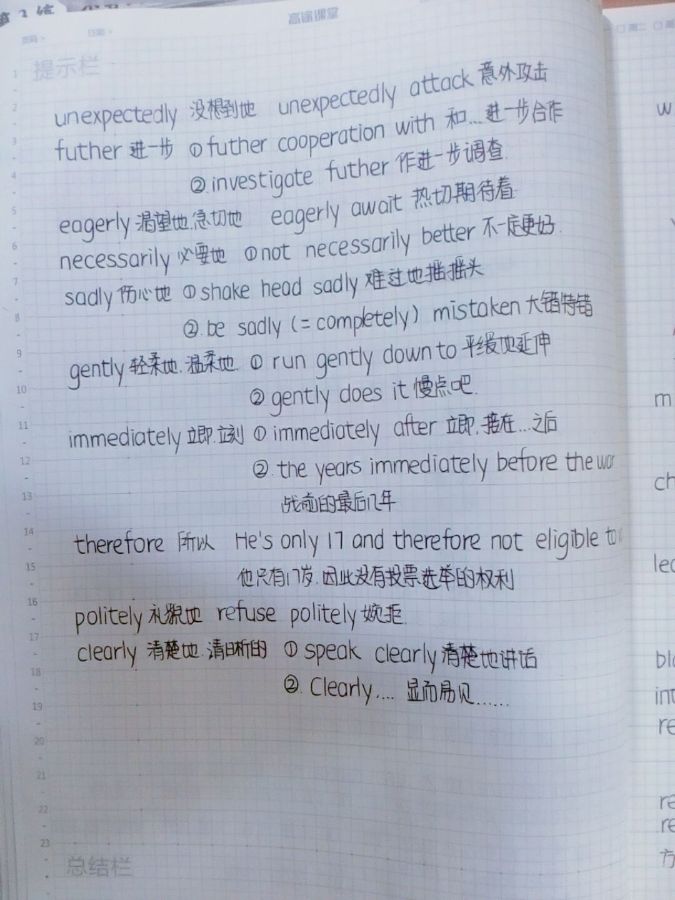 高途课堂
提示栏
unexpectedly 没想到地 unexpectedly attack 意外攻击
futher 进一步 ①futher cooperation with 和...进一步合作
②investigate futher 作进一步调查
eagerly 渴望地.急切地 eagerly await 热切期待着
necessarily 必要地 ①not necessarily better 不一定更好.
sadly 伤心地 ①shake head sadly 难过地摇摇头
②be sadly (=completely) mistaken 大错特错
gently 轻柔地.温柔地 ① run gently down to 平缓地延伸
②gently does it 慢点吧.
immediately 立即.立刻 ① immediately after 立即.接在...之后
②. the years immediately before the war
战前的最后几年
therefore 所以 He's only 17 and therefore not eligible to
他只有17岁.因此没有投票选举的权利
politely 礼貌地 refuse politely 婉拒.
clearly 清楚地.清晰的 ① speak clearly 清楚地讲话
②. Clearly.... 显而易见......
总结栏